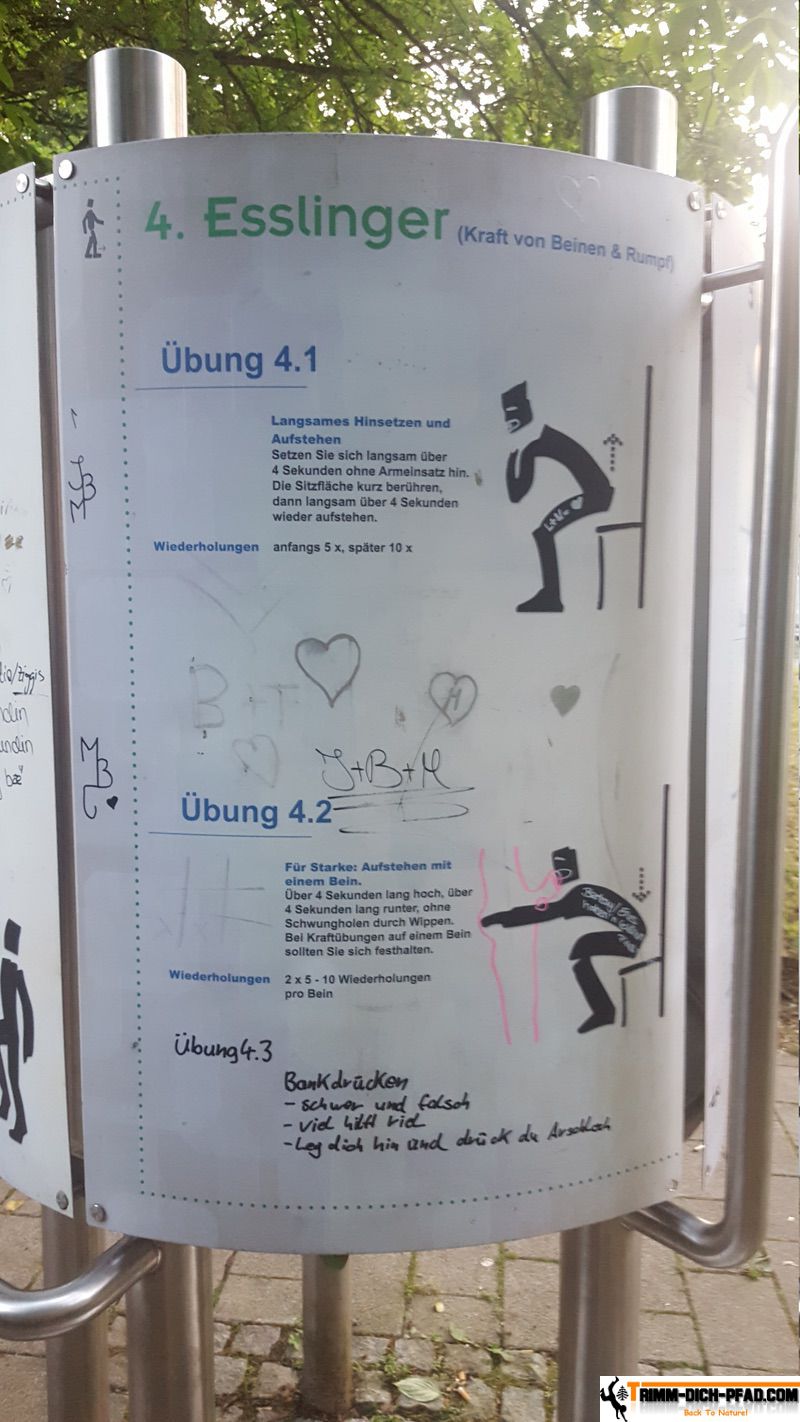 4. Esslinger (Kraft von Beinen & Rumpf)
Übung 4.1
Langsames Hinsetzen und
Aufstehen
Setzen Sie sich langsam über
4 Sekunden ohne Armeinsatz hin.
Die Sitzfläche kurz berühren,
dann langsam über 4 Sekunden
wieder aufstehen.
Wiederholungen anfangs 5 x, später 10 x
B + T
H
J+B+M
Übung 4.2
Für Starke: Aufstehen mit
einem Bein.
Über 4 Sekunden lang hoch, über
4 Sekunden lang runter, ohne
Schwungholen durch Wippen.
Bei Kraftübungen auf einem Bein
sollten Sie sich festhalten.
Wiederholungen 2 x 5 - 10 Wiederholungen
pro Bein
Übung 4.3
Bankdrücken
- schwer und falsch
- viel hilft viel
- Leg dich hin und drück du Arschloch
TRIMM-DICH-PFAD.COM
Back To Nature!